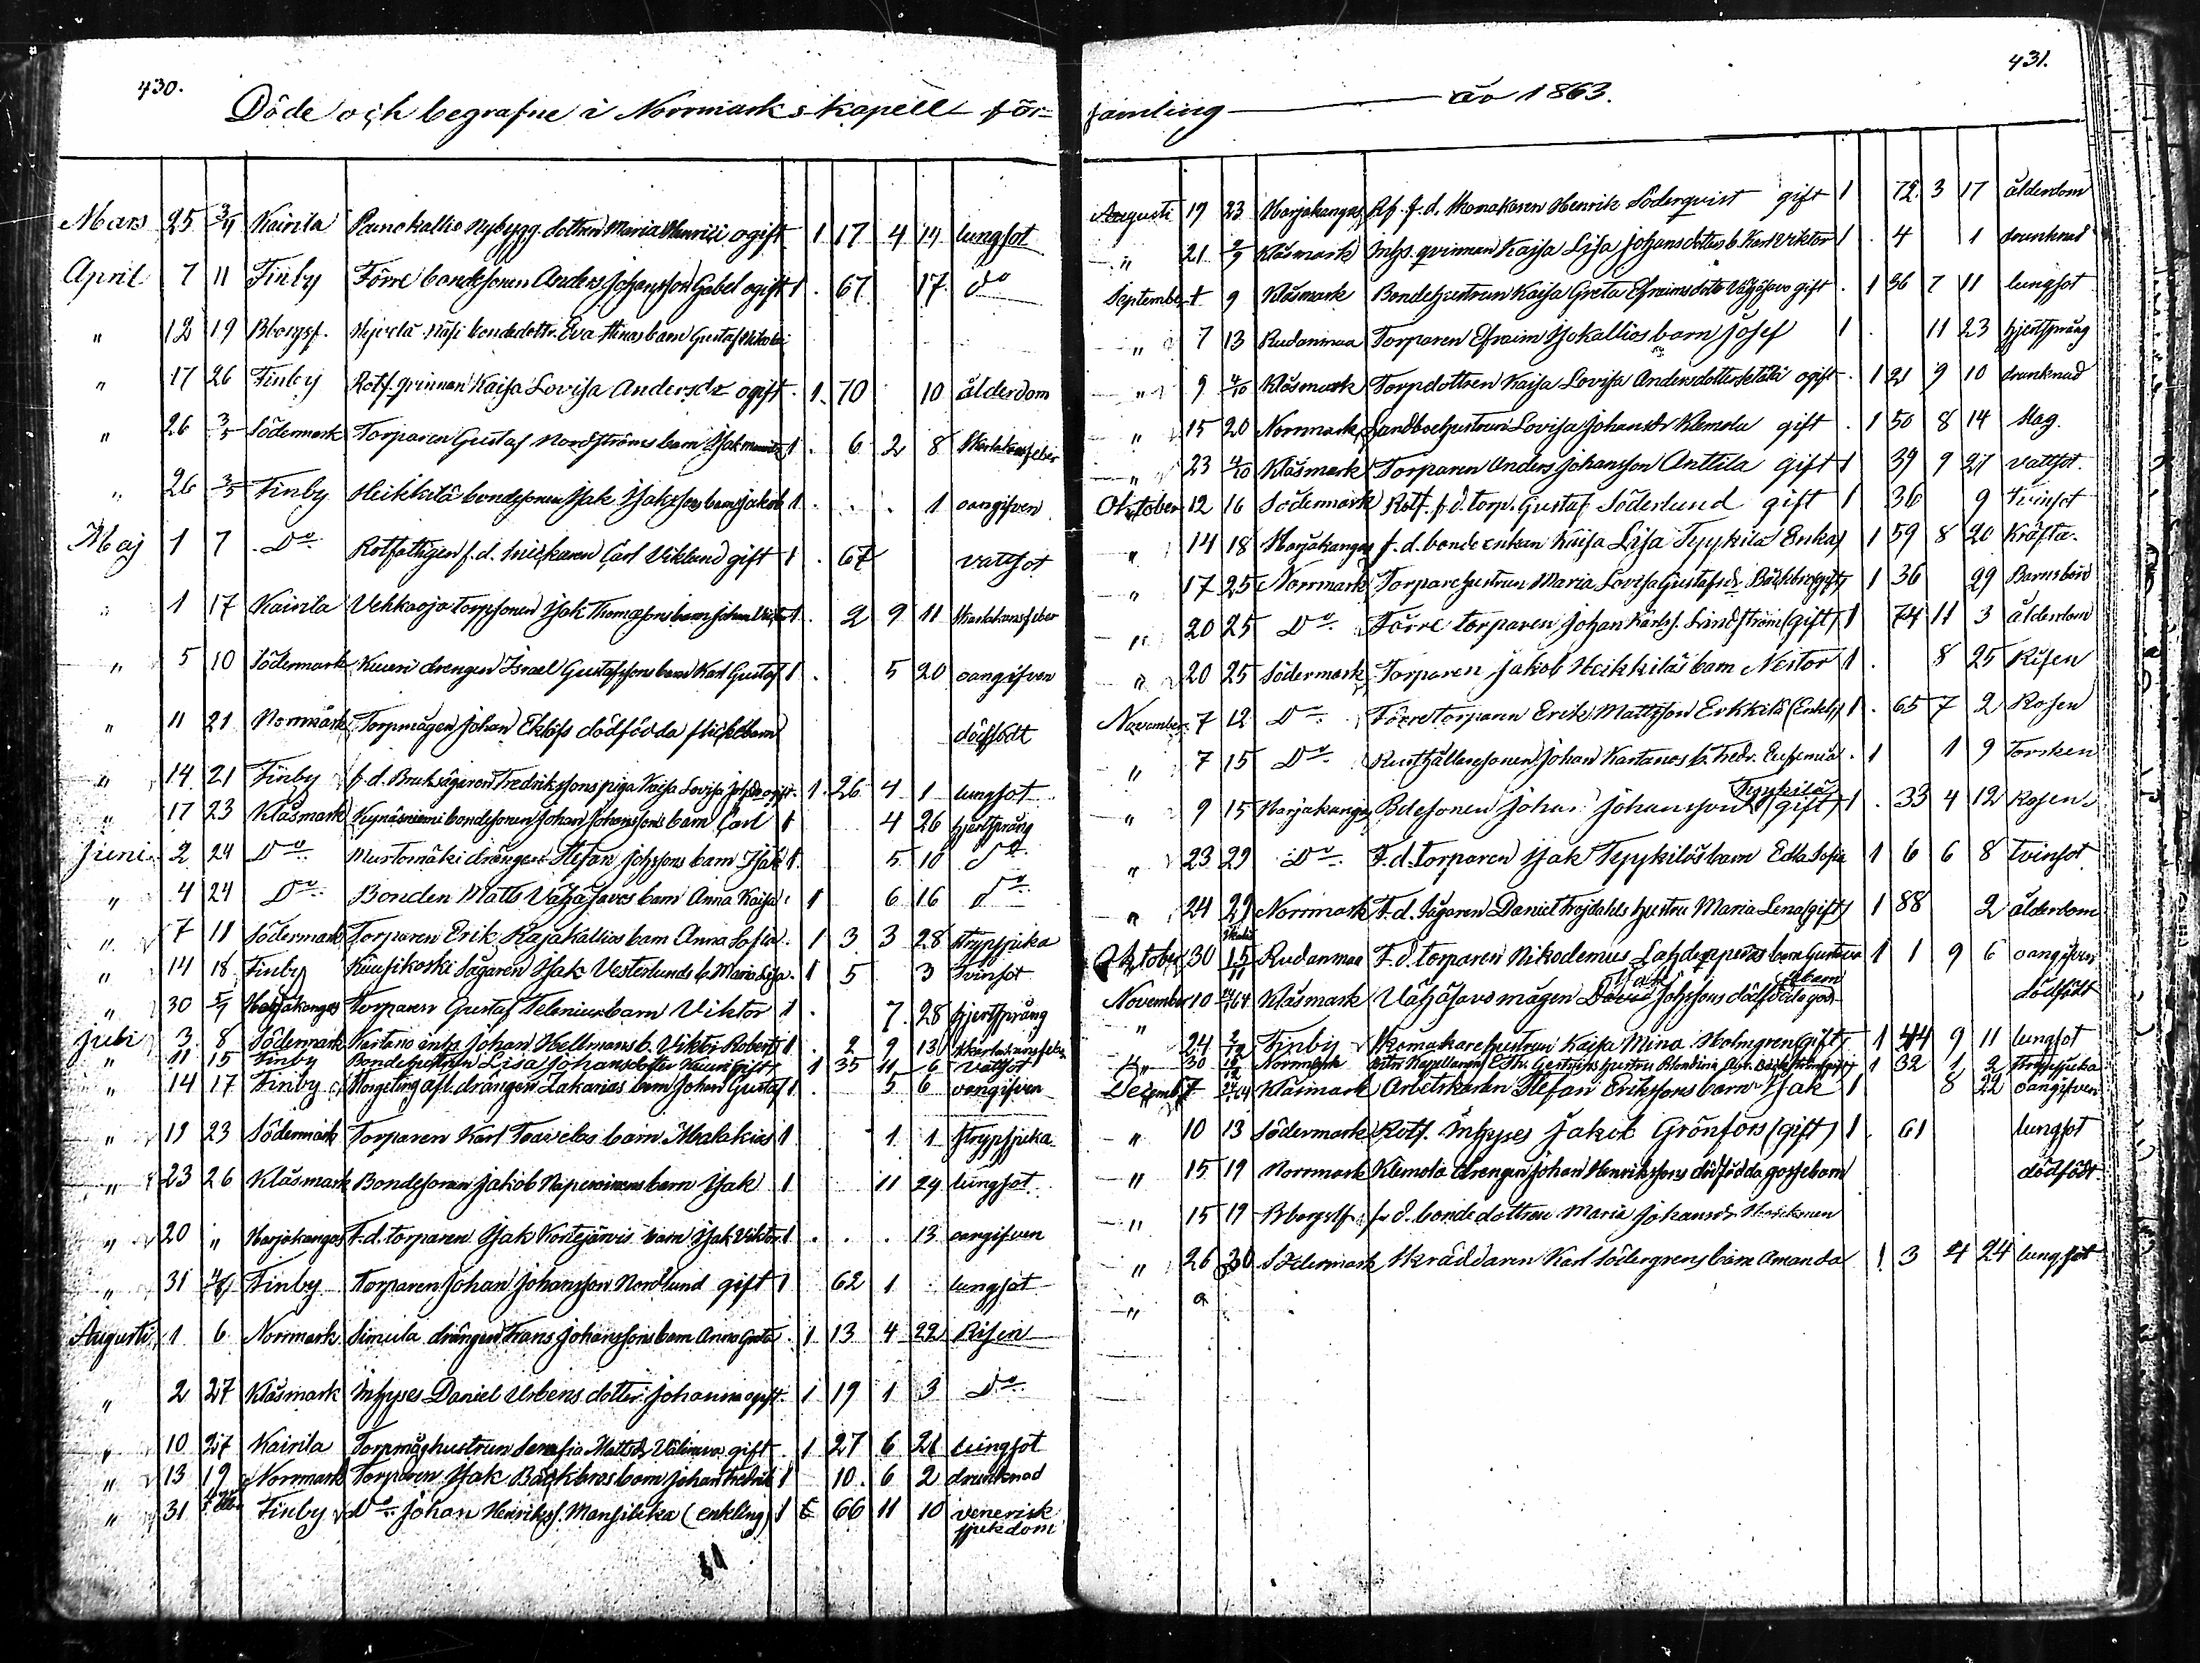 430.
Döde och begrafne i Norrmarks kapell för=
Mars 25 3/4 Kairila Nybygg. dottren Maria ogift 1 17 4 14 lungsot
April 7 11 Finby Förre bondesonen Anders Johansson Gabel ogift 1 67 17 do
" 12 19 Bborgsf. bondedottr. Eva Stinas barn Gustaf Nikolai
" 17 26 Finby Rotf. qvinnan Kajsa Lovisa Andersdr ogift 1 70 10 ålderdom
" 26 3/5 Södermark Torparen Gustaf Nordströms barn Isak 1 6 2 8 Skarlakansfeber
" 26 3/5 Finby Heikkilä bondesonen Isak Isakssons barn Jakob 1 1 oangifven
Maj 1 7 Do Rotfattigen f.d. Carl Viklund gift 1 67 vattsot
" 1 17 Kairila Vehkaoja torpsonen Isak Thomassons barn Johan 1 2 9 11 Skarlakansfeber
" 5 10 Södermark Kuuri drengen Israel Gustafssons barn Karl Gustaf 1 5 20 oangifven
" 11 21 Norrmark Torpmågen Johan Eklöfs dödfödda flickebarn dödfödt
" 14 21 Finby f.d. Bruksägaren Fredrikssons piga Kajsa Lovisa ogift 1 26 4 1 lungsot
" 17 23 Klåsmark Kynäsniemi bondesonen Johan Johanssons barn Carl 1 4 26 hjertsprång
Juni 2 24 Do Mustomäki drängen Stefan Johssons barn Isak 1 5 10 do
" 4 24 Do Bonden Matts Vähäjavos barn Anna Kajsa 1 6 16 do
" 7 11 Södermark Torparen Erik Rajakallios barn Anna Sofia 1 3 3 28 strypsjuka
" 14 18 Finby Kuusikoski Sågaren Isak Vesterlunds b. Maria Lisa 1 5 3 tvinsot
" 30 5/7 Harjakangas Torparen Gustaf Telenius barn Viktor 1 7 28 hjertsprång
Juli 3 8 Södermark Kartano inhs. Johan Hellmans b. Viktor Robert 1 2 9 13 Skarlakansfeber
" 11 15 Finby Bondehustrun Lisa Johansdotter Kuuri gift 1 35 11 6 vattsot
" 14 17 Finby afl. drängen Zakarias barn Johan Gustaf 1 5 6 oangifven
" 19 23 Södermark Torparen Karl Taavelas barn Malakias 1 1 1 strypsjuka
" 23 26 Klåsmark Bondesonen Jakob barn Isak 1 11 29 lungsot
" 20 " Harjakangas F.d. torparen Isak Kortejärvis barn Isak Viktor 1 13 oangifven
" 31 Finby Torparen Johan Johansson Nordlund gift 1 62 1 lungsot
Augusti 1 6 Norrmark Simula drängen Frans Johanssons barn Anna Greta 1 13 4 22 Risen
" 2 27 Klåsmark Inhyses Daniel Urbens dotter Johanna ogift 1 19 1 3 Do
" 10 27 Kairila Torpmåghustrun Serafia Mattsdr gift 1 27 6 21 lungsot
" 13 19 Norrmark Torparen Isak Bäckbros barn Johan Fredrik 1 10 6 2 drunknad
" 31 Finby do Johan Henrikss. Mansilika (enkling) 1 66 11 10 venerisk
sjukdom
431.
samling — år 1863.
Augusti 19 23 Harjakangas Rf. f.d. Skomakaren Henrik Söderqvist gift 1 72 3 17 ålderdom
" 21 2/9 Klåsmark Inhs. qvinnan Kajsa Lisa Johansdotters b. Karl Viktor 1 4 1 drunknad
September 1 9 Klåsmark Bondehustrun Kajsa Greta Efraimsdotr Vähäjavo gift 1 36 7 11 lungsot
" 7 13 Rudanmaa Torparen Efraim Isokallios barn Josef 1 11 23 hjertsprång
" 9 4/10 Klåsmark Torpdottren Kajsa Lovisa Andersdotter Setälä ogift 1 21 9 10 drunknad
" 15 20 Norrmark Landboehustrun Lovisa Johansdr Klemola gift 1 50 8 14 Slag.
" 23 4/10 Klåsmark Torparen Anders Johansson Anttila gift 1 39 9 27 vattsot.
Oktober 12 16 Södermark Rotf. f.d. torp. Gustaf Söderlund gift 1 36 9 tvinsot
" 14 18 Harjakangas f.d. bonde enkan Kajsa Lisa Tyykilä Enka 1 59 8 20 Kräfta.
" 17 25 Norrmark Torparehustrun Maria Lovisa Gustafsdr Bäckbro (gift) 1 36 29 Barnsbörd
" 20 25 Do Förre torparen Johan Karlss. Lindström (gift) 1 74 11 3 ålderdom
" 20 25 Södermark Torparen Jakob Heikkiläs barn Nestor 1 8 25 Risen
November 7 12 Do Förre torparen Erik Mattsson Erkkilä (Enkl.) 1 65 7 2 Rosen
" 7 15 Do Rusthållaresonen Johan Kartanos b. Fredr. Eufemia 1 1 9 Torsken
" 9 15 Harjakangas Bdesonen Johan Johansson Tyykilä (gift) 1 33 4 12 Rosen
" 23 29 Do F.d. torparen Isak Tyykiläs barn Edla Sofia 1 6 6 8 tvinsot
" 24 29 Norrmark F.d. Sågaren Daniel Frojdahls hustru Maria Lena (gift) 1 88 2 ålderdom
Oktober 30 15/11 Rudanmaa F.d. torparen Nikodemus Lahdenperäs barn Gustava 1 1 9 6 oangifven
November 10 Klåsmark Vähäjavo mågen Isak Johssons dödfödda gossebarn dödfödt
" 24 Finby Skomakarehustrun Kajsa Mina Holmgren (gift) 1 44 9 11 lungsot
" 30 Norrmark Kapellanen hustru 1 32 1 2 strypsjuka
December 7 Klåsmark Arbetskaren Stefan Erikssons barn Isak 1 8 22 oangifven
" 10 13 Södermark Rotf. Inhyses Jakob Grönfors (gift) 1 61 lungsot
" 15 19 Norrmark Klemola drengen Johan Henrikssons dödfödda gossebarn dödfödt
" 15 19 Bborgsf. f.d. bondedottren Maria Johansdr
" 26 30 Södermark Skräddaren Karl Södergrens barn Amanda 1 3 4 24 lungsot
"